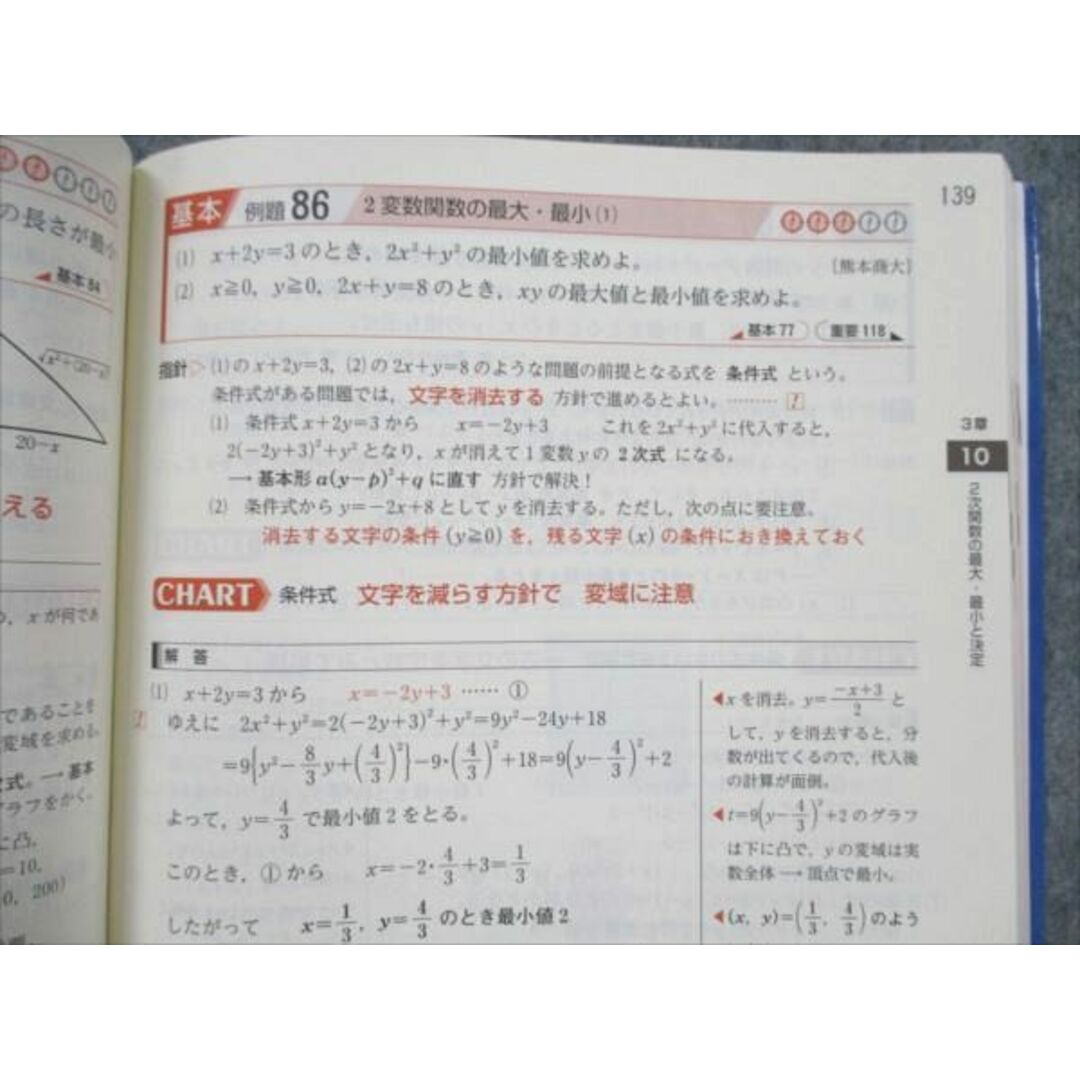 の長さが最小
基本84
√x²+(20−x)²
20−x
える
x が何であ
であることを
変域を求める。
次式。→基本
グラフをかく。
に凸。
=10,
0, 200)
139
基本 例題 86 2変数関数の最大・最小(1)
(1) x+2y=3 のとき，2x²+y² の最小値を求めよ。 [熊本商大]
(2) x≧0，y≧0，2x+y=8 のとき，xy の最大値と最小値を求めよ。
基本77 重要118
指針 (1)の x+2y=3，(2)の 2x+y=8 のような問題の前提となる式を 条件式 という。
条件式がある問題では，文字を消去する 方針で進めるとよい。………
(1) 条件式 x+2y=3 から x=−2y+3 これを 2x²+y² に代入すると，
2(−2y+3)²+y² となり，x が消えて1変数 y の 2次式 になる。
→ 基本形 a(y−p)²+q に直す 方針で解決！
(2) 条件式から y=−2x+8 として y を消去する。ただし，次の点に要注意。
消去する文字の条件 (y≧0) を，残る文字 (x) の条件におき換えておく
CHART 条件式 文字を減らす方針で 変域に注意
解答
(1) x+2y=3 から x=−2y+3 …… ①
ゆえに 2x²+y²=2(−2y+3)²+y²=9y²−24y+18
=9{y²−8/3 y+(4/3)²}−9・(4/3)²+18=9(y−4/3)²+2
よって，y=4/3 で最小値2をとる。
このとき，①から x=−2・4/3+3=1/3
したがって x=1/3，y=4/3 のとき最小値2
◀x を消去。y=(−x+3)/2 と
して，y を消去すると，分
数が出てくるので，代入後
の計算が面倒。
◀t=9(y−4/3)²+2 のグラフ
は下に凸で，y の変域は実
数全体 → 頂点で最小。
◀(x, y)=(1/3, 4/3) のよう
3章
10
2次関数の最大・最小と決定